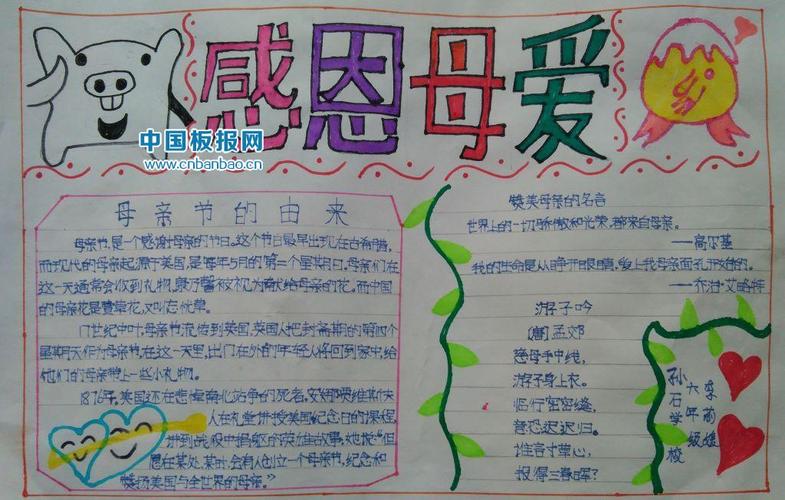 感恩母爱
中国板报网
www.cnbanbao.cn
母亲节的由来
母亲节,是一个感谢母亲的节日。这个节日最早出现在古希腊,
而现代的母亲起源于美国,是每年5月的第二个星期日。母亲们在
这一天通常会收到礼物,康乃馨被视为献给母亲的花。而中国
的母亲花是萱草花,又叫忘忧草。
17世纪中叶,母亲节流传到英国,英国人把封斋期的第四个
星期天作为母亲节,在这一天里,出门在外的年轻人将回到家中,给
他们的母亲带上一些小礼物。
1876年,美国还在悲悼南北战争的死者,安娜·贾维斯夫
人在礼堂讲授美国纪念日的课程,
讲到战役中捐躯的英雄故事,她说:"但
愿在某处、某时,会有人创立一个母亲节,纪念和
赞扬美国与全世界的母亲。"
赞美母亲的名言
世界上的一切骄傲和光荣,都来自母亲。
——高尔基
我的生命是从睁开眼睛,爱上我母亲面孔开始的。
——乔治·艾略特
游子吟
(唐)孟郊
慈母手中线,
游子身上衣。
临行密密缝,
意恐迟迟归。
谁言寸草心,
报得三春晖?
孙石学校
六年级
李